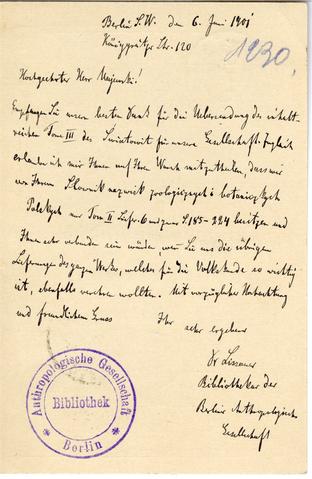 Berlin S.W. den 6. Juni 1901
Königgrätzer Str. 120
1230,
Hochgeehrter Herr Majewski!
Empfangen Sie unsern besten Dank für die Uebersendung des inhalt-
reichen Tom III des Swiatowit für unsere Gesellschaft. Zugleich
erlaube ich mir Ihnen auf Ihren Wunsch mitzutheilen, dass wir
von Ihrem Slownik nazwisk zoologicznych i botanicznych
Polskych nur Tom II Liefr. 6 und zwar S. 185-224 besitzen und
Ihnen sehr verbunden sein würden, wenn Sie uns die übrigen
Lieferungen des ganzen Werkes, welches für die Volkskunde so wichtig
ist, ebenfalls verehren wollten. Mit vorzüglicher Hochachtung
und freundlichem Gruss
Ihr sehr ergebener
Dr Lissauer
Bibliothekar der
Berliner Anthropologischen
Gesellschaft
Anthropologische Gesellschaft
Bibliothek
* Berlin *